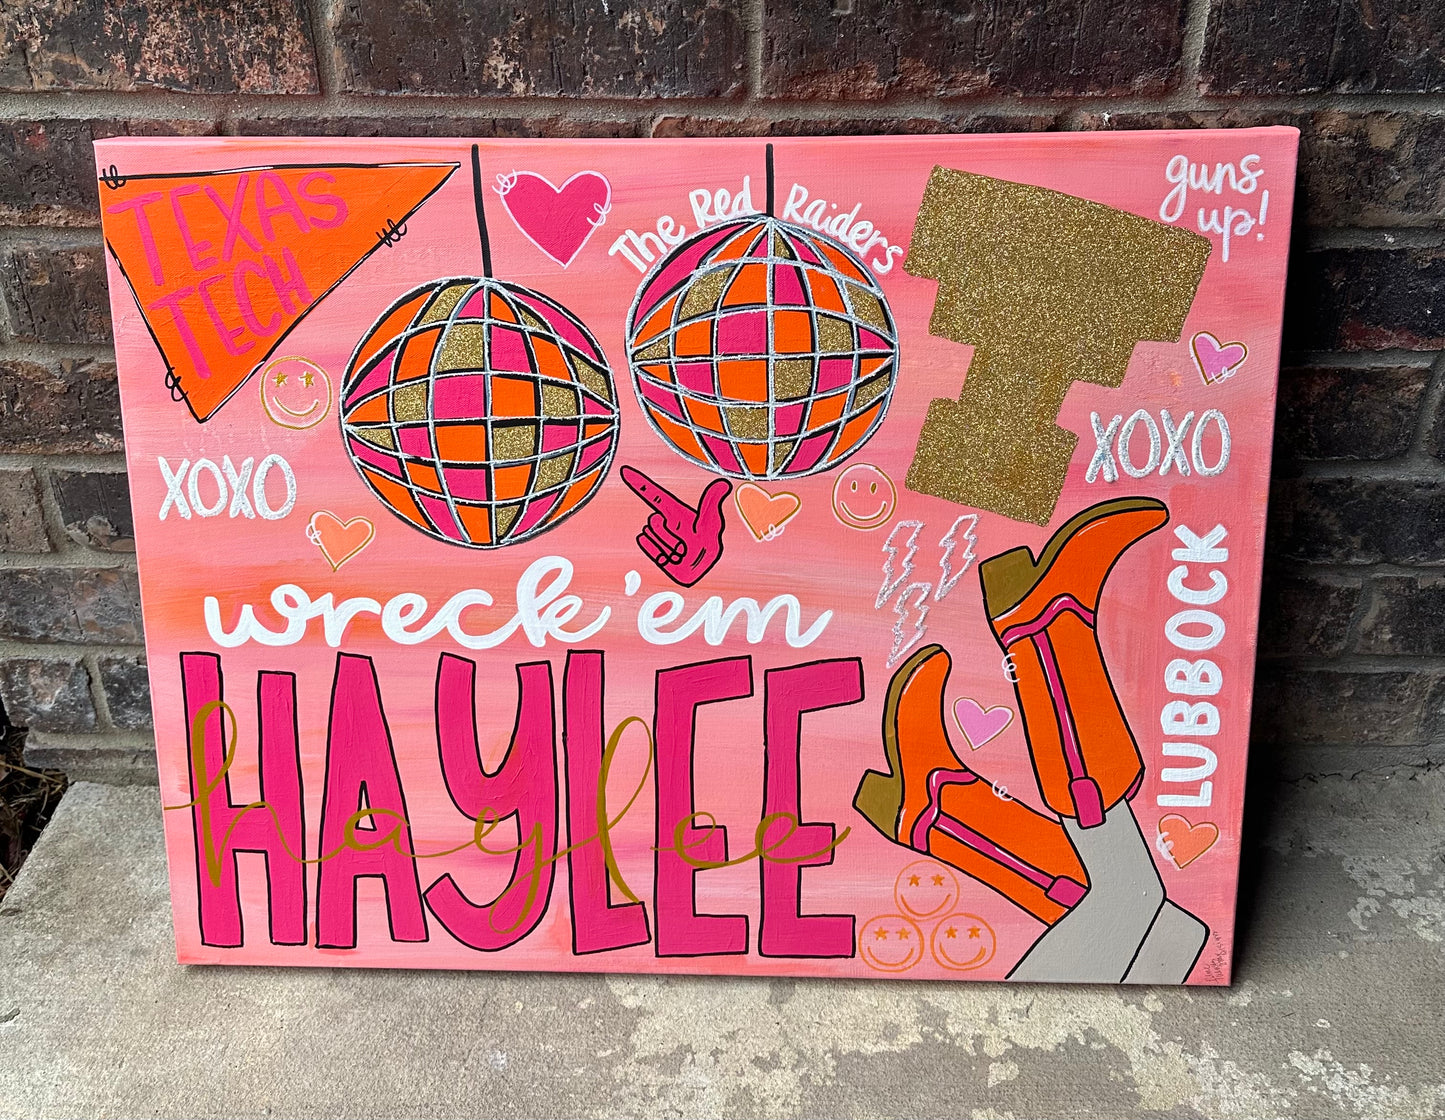 TEXAS
TECH
The Red Raiders
guns
up!
XOXO
XOXO
wreck 'em
HAYLEE
haylee
LUBBOCK